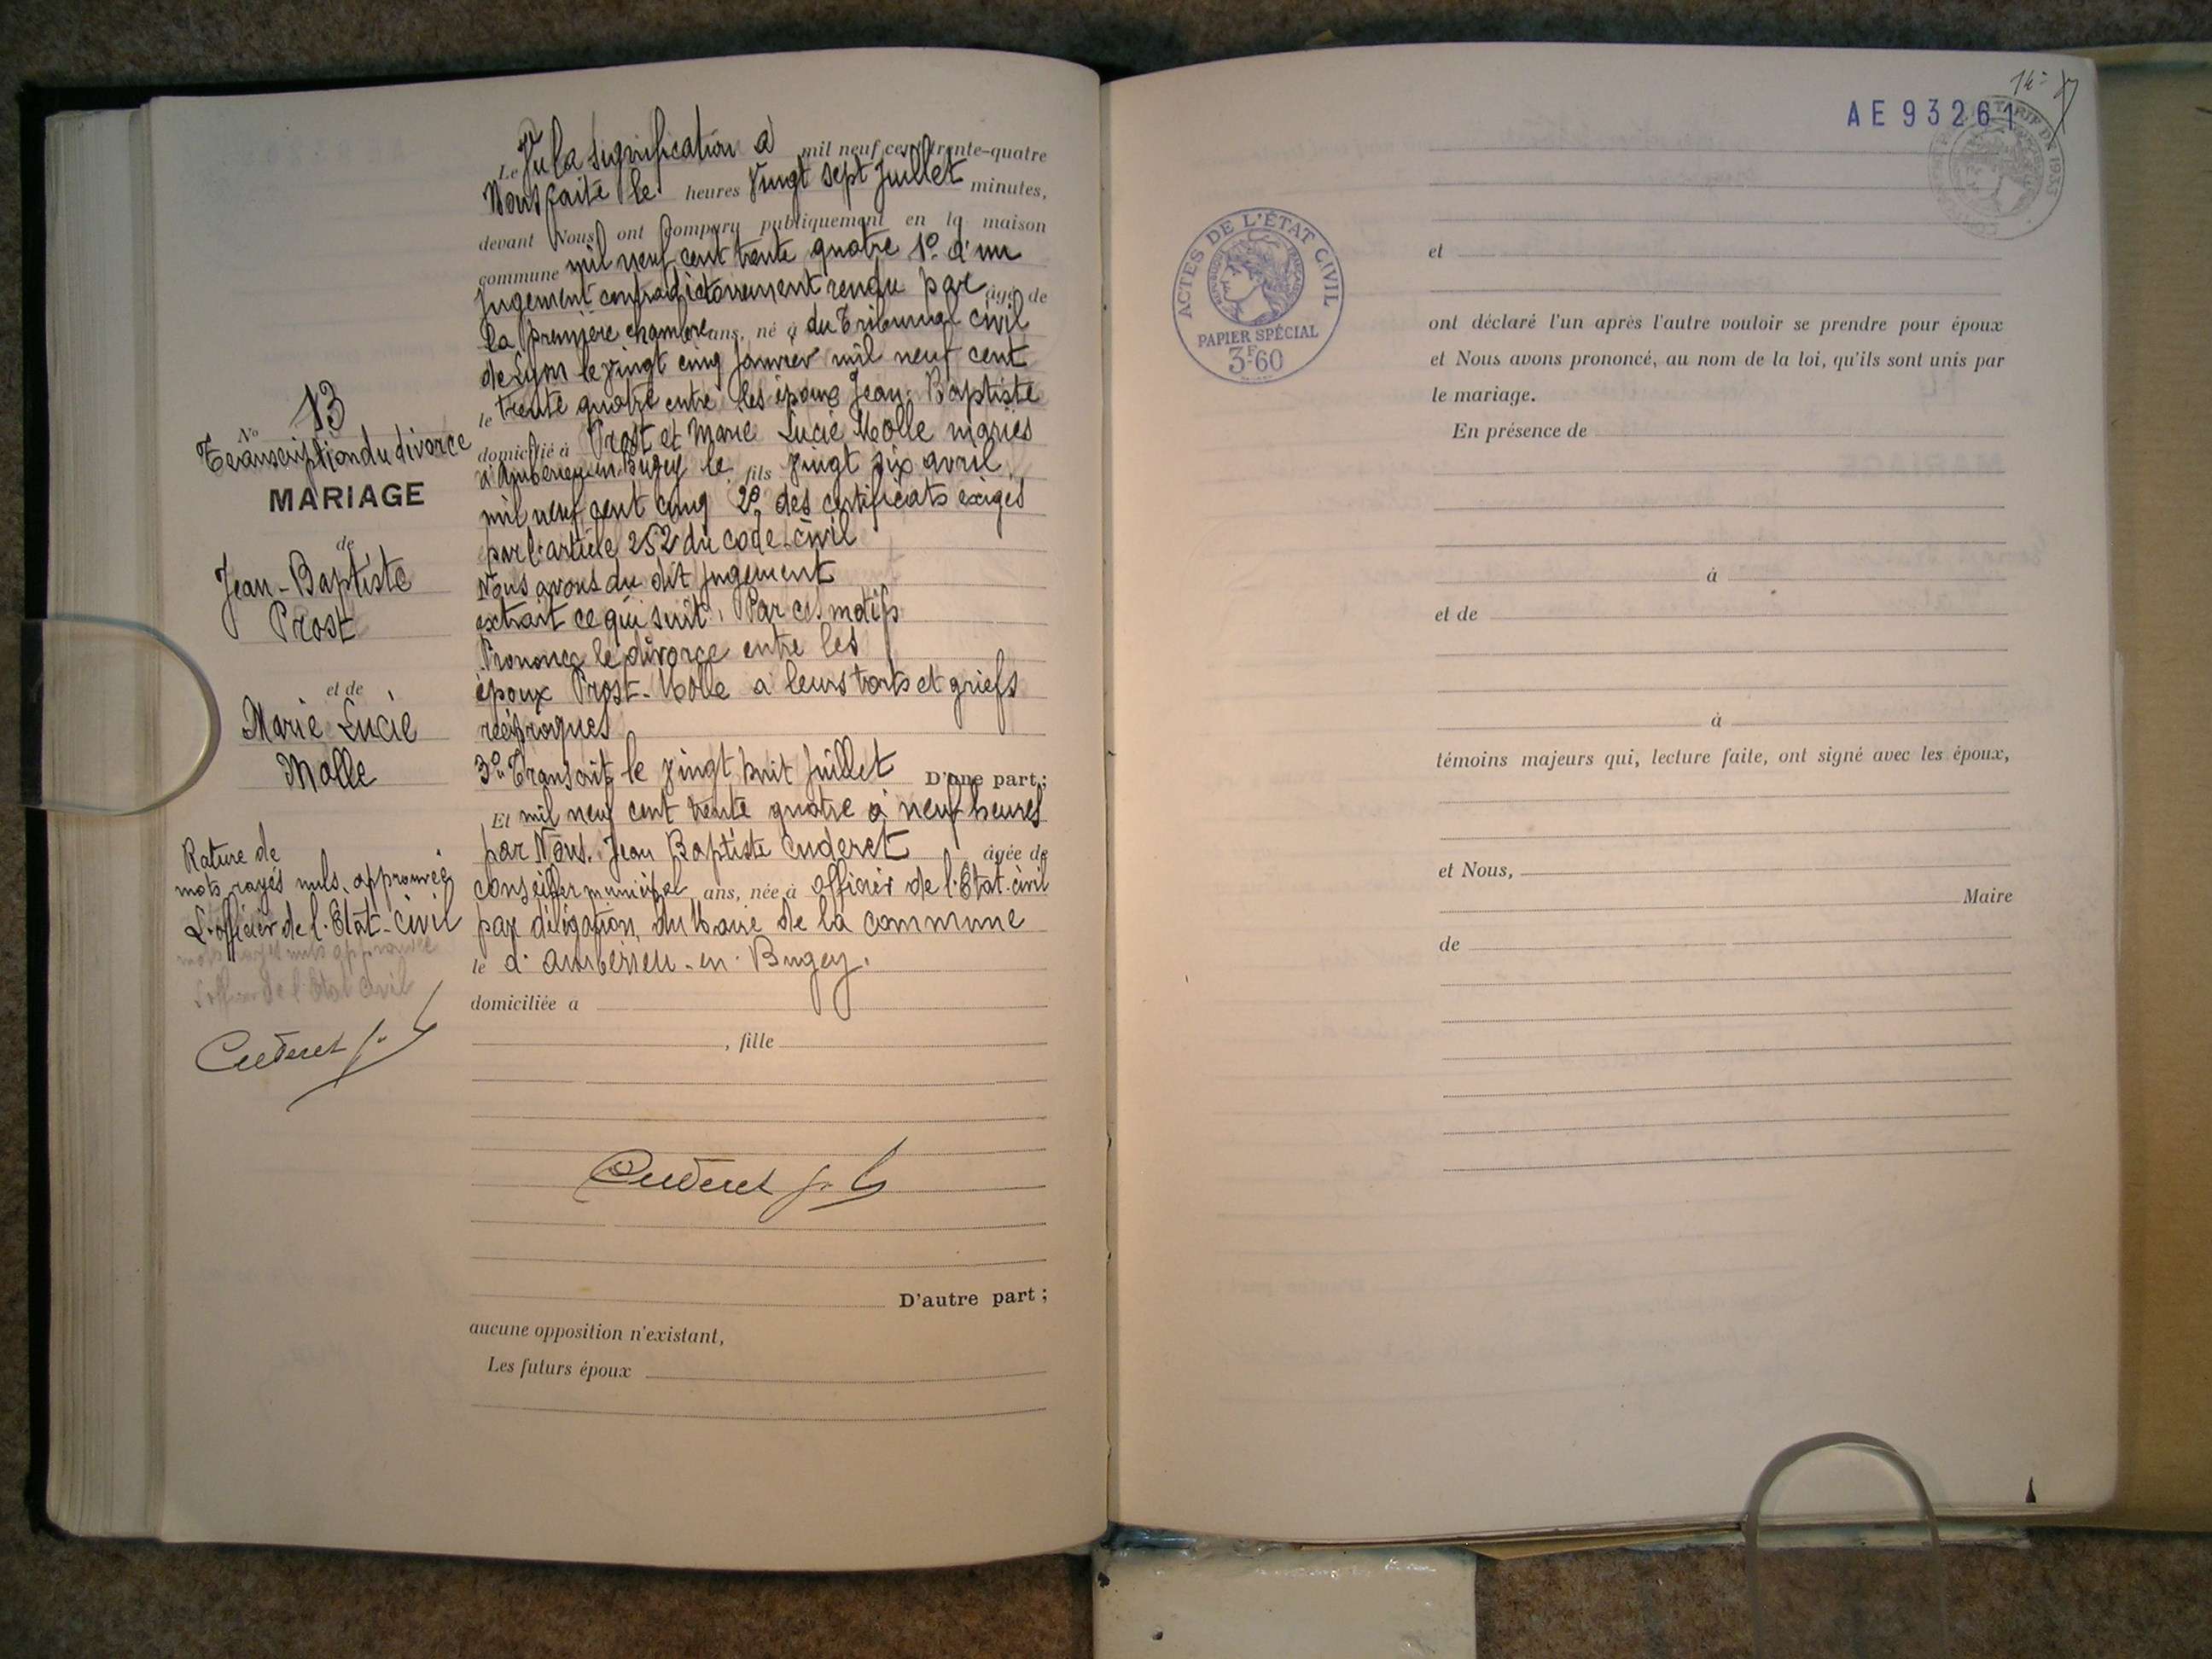 N° 13
Transcription du divorce
MARIAGE
de
Jean-Baptiste
Prost
et de
Marie Lucie
Molle
Rature de
mots rayés nuls, approuvée
L'officier de l'Etat-civil
mots rayés nuls approuvée
L'officier de l'Etat Civil
Cuderet J. B
Le Vu la signification à mil neuf cent trente-quatre
Nous faite le heures Vingt sept Juillet minutes,
devant Nous ont comparu publiquement en la maison
commune mil neuf cent trente quatre 1° d'un
Jugement contradictoirement rendu par âgé de
la première chambre ans, né à du Tribunal civil
de Lyon le vingt cinq Janvier mil neuf cent
le trente quatre entre les époux Jean-Baptiste
domicilié à Prost et Marie Lucie Molle mariés
à Ambérieu-en-Bugey le fils vingt six avril
mil neuf cent cinq 2° des certificats exigés
par l'article 252 du code civil
Nous avons du dit Jugement
extrait ce qui suit. Par ces motifs
Prononce le divorce entre les
époux Prost-Molle à leurs torts et griefs
réciproques
3° Transcrit le vingt huit Juillet D'une part;
Et mil neuf cent trente quatre à neuf heures
par Nous. Jean Baptiste Cuderet âgée de
conseiller municipal ans, née à officier de l'Etat-civil
par délégation du Maire de la commune
le d'ambérieu-en-Bugey.
domiciliée à
, fille
Cuderet J. B
D'autre part ;
aucune opposition n'existant,
Les futurs époux
AE 93261
TARIF DE 1933
ACTES DE L'ÉTAT CIVIL
RÉPUBLIQUE FRANÇAISE
PAPIER SPÉCIAL
3F60
et
ont déclaré l'un après l'autre vouloir se prendre pour époux
et Nous avons prononcé, au nom de la loi, qu'ils sont unis par
le mariage.
En présence de
à
et de
à
témoins majeurs qui, lecture faite, ont signé avec les époux,
et Nous,
Maire
de